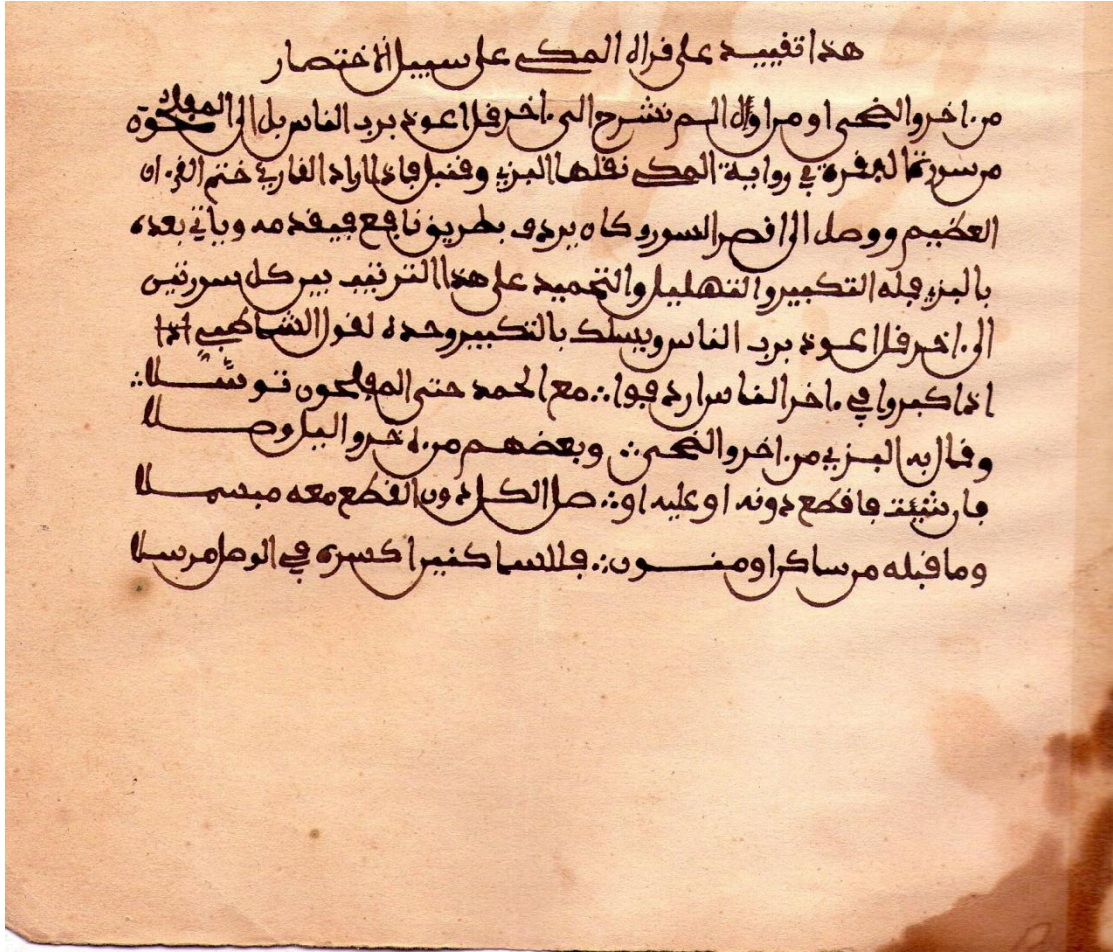 هذا تقييد على قراة المكي على سبيل الاختصار
من ءاخر والضحى او من اول الم نشرح الى ءاخر قل اعوذ برب الناس بل الى المفلحون
من سورة البقرة في رواية المكي نقلها البزي وقنبل فاذا اراد القارئ ختم القرءان
العظيم ووصل الى قصر السور وكان يردف بطريق نافع فيقدمه وياتي بعده
بالبزي فله التكبير والتهليل والتحميد على هذا الترتيب بين كل سورتين
الى ءاخر قل اعوذ برب الناس ويبسلك بالتكبير وحده لقول الشاطبي
اذا كبروا في ءاخر الناس اردفوا ∴ مع الحمد حتى المفلحون توسلا ∴
وقال به البزي من ءاخر والضحى ∴ وبعضهم من ءاخر واليل وصلا
فان شئت فاقطع دونه او عليه او ∴ صل الكل دون القطع معه مبسملا
وما قبله من ساكن او منون ∴ فللساكنين اكسره في الوصل مرسلا